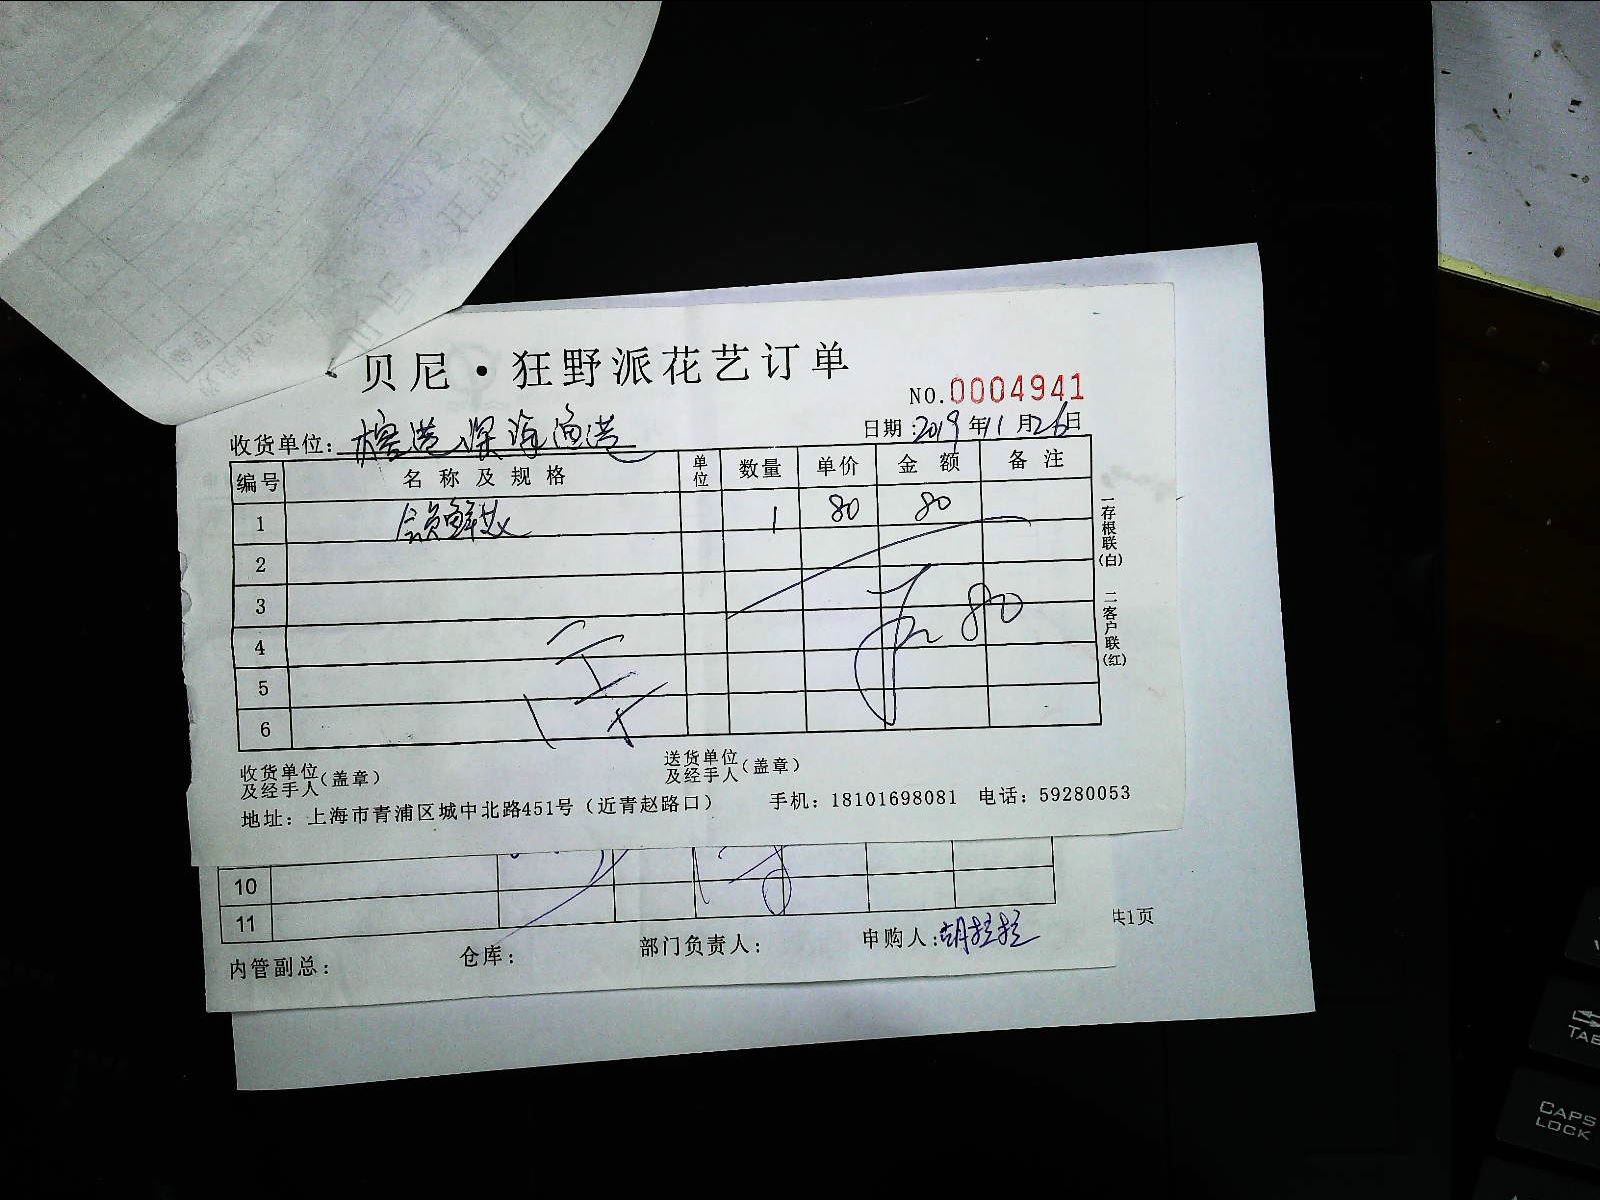 贝尼·狂野派花艺订单
NO.0004941
收货单位: 榕港深海渔港
日期:2019年11月26日
编号 名称及规格 单位 数量 单价 金额 备注
1 会员鲜花 1 80 80
2
3
80
4
5
6
一存根联(白) 二客户联(红)
收货单位及经手人(盖章) 送货单位及经手人(盖章)
地址: 上海市青浦区城中北路451号(近青赵路口) 手机: 18101698081 电话: 59280053
10
11
共1页
内管副总: 仓库: 部门负责人: 申购人:胡拉拉
TAB
CAPS LOCK